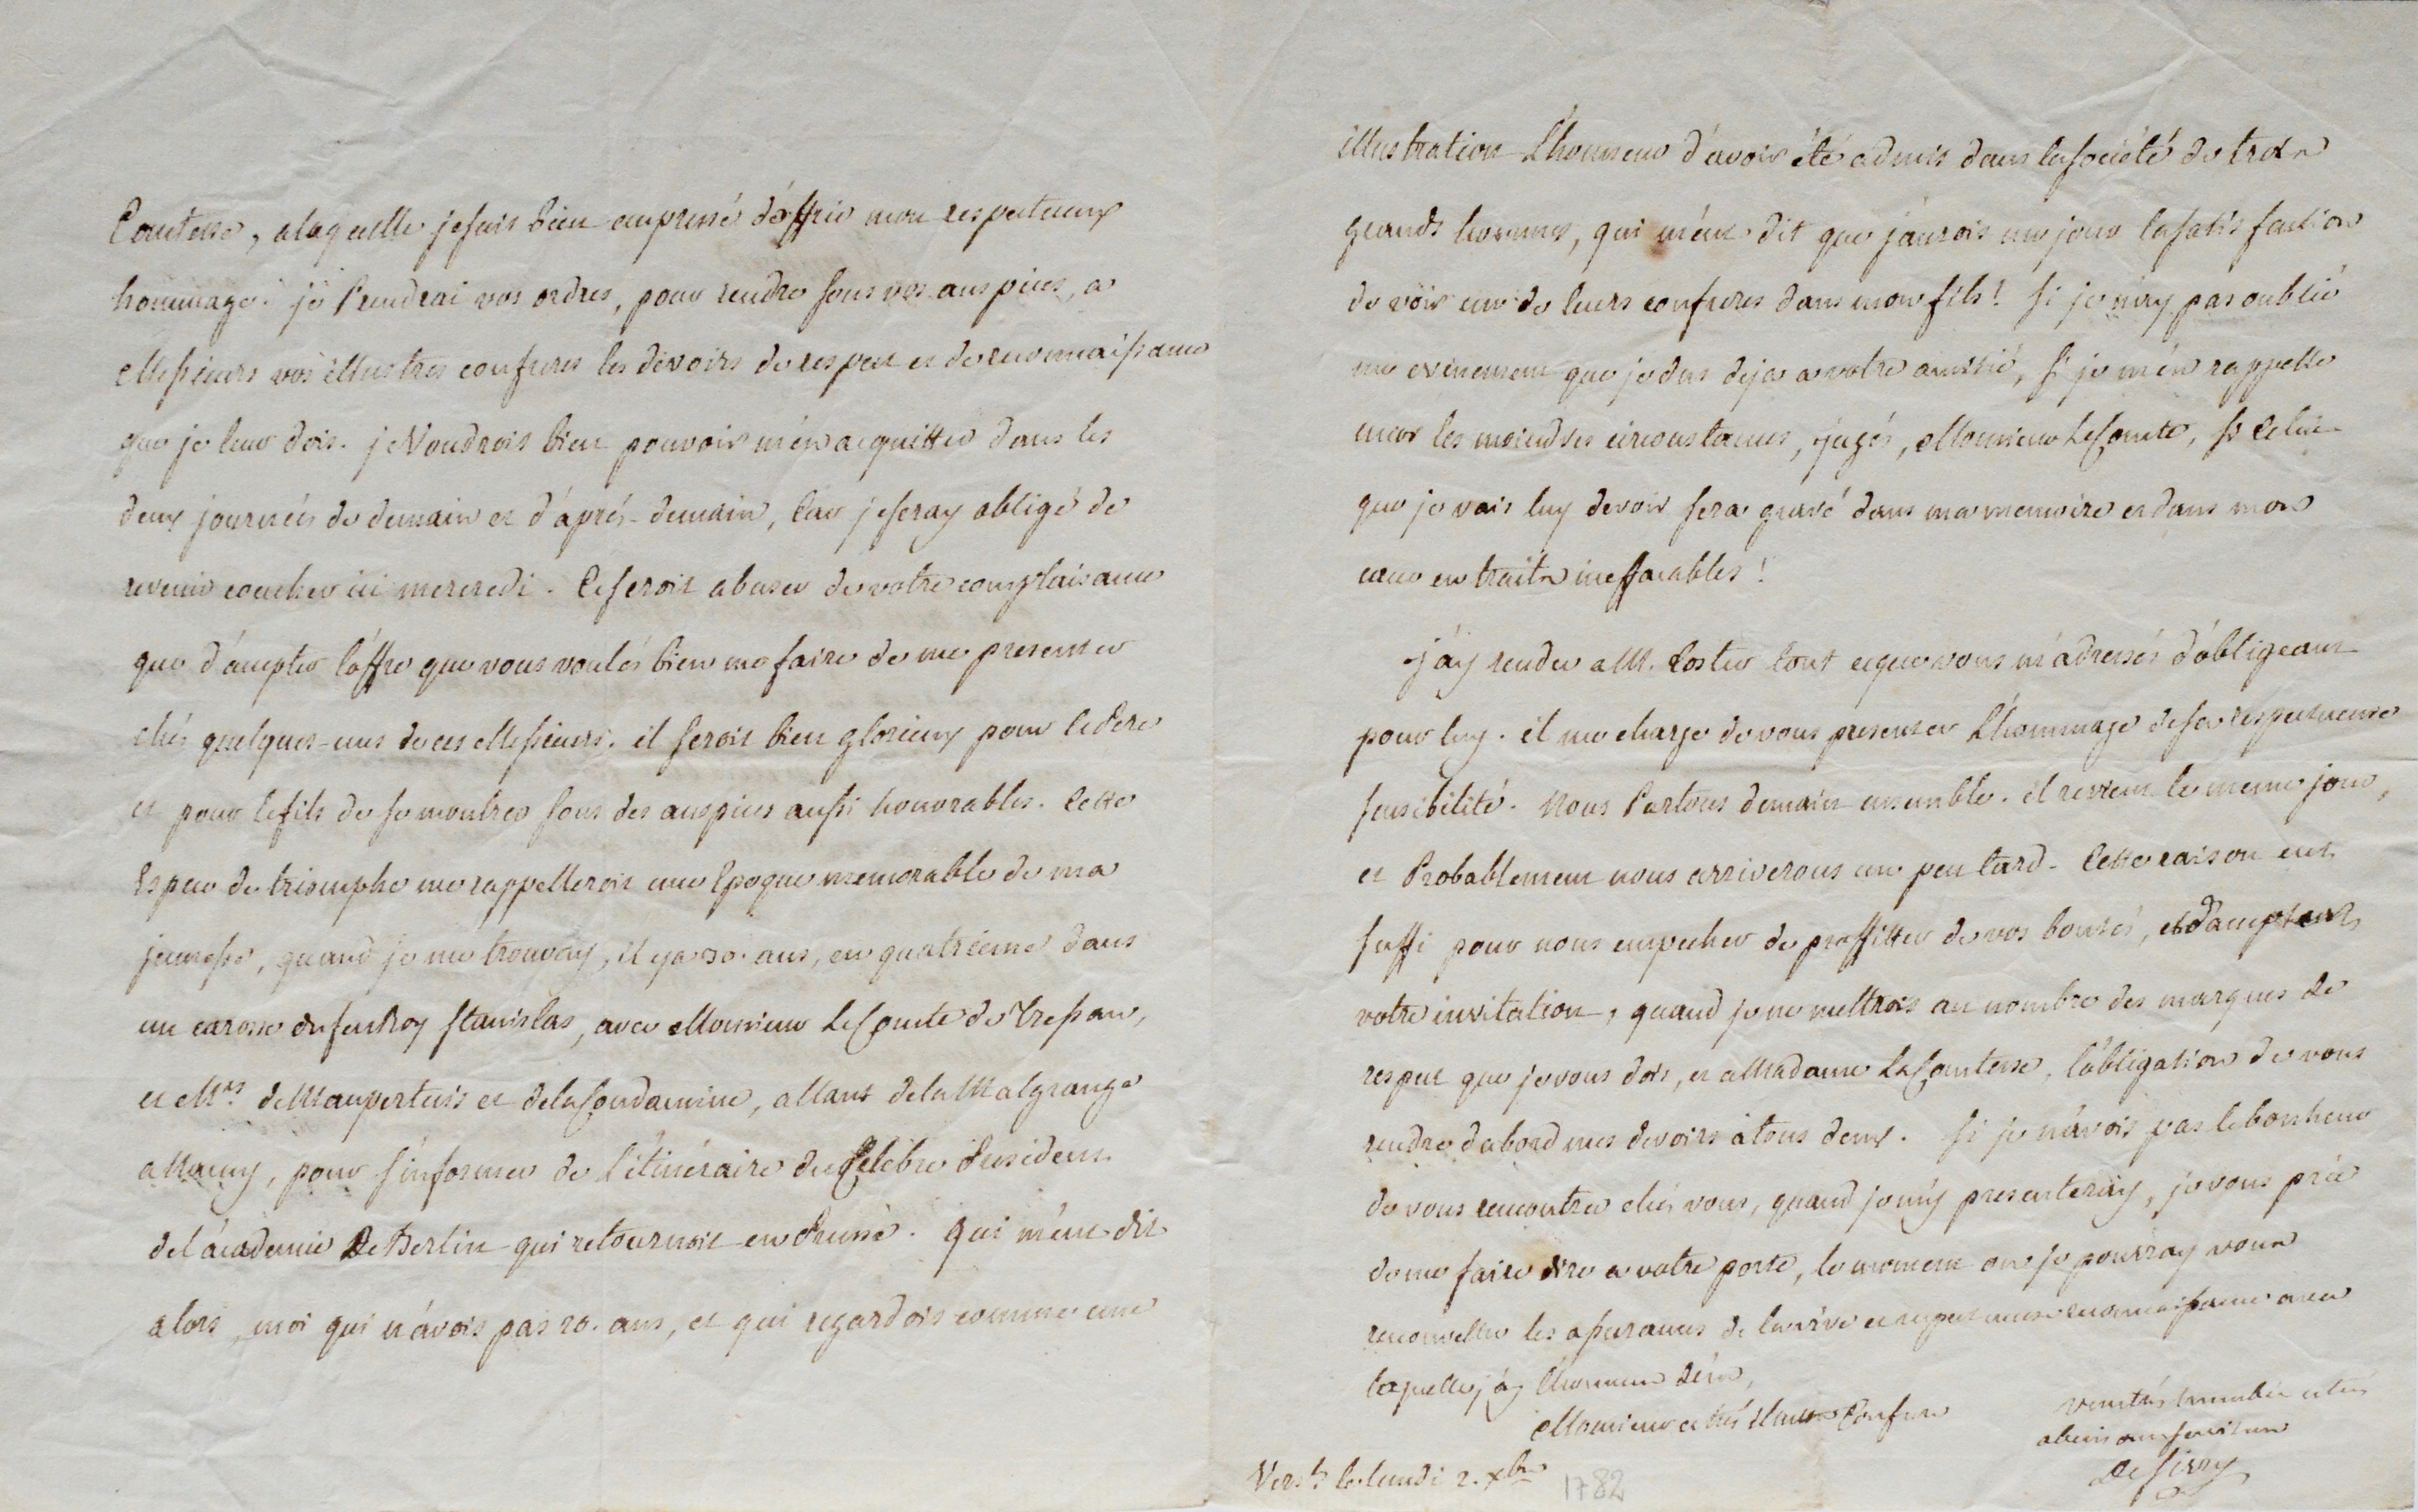 Comtesse, a laquelle je suis bien empressé d'óffrir mon respectueux
hommage. je Prendrai vos ordres, pour rendre sous vos auspices, a
Messieurs vos illustres confreres les devoirs de respect et de reconnaissance
que je leur dois. je Voudrois bien pouvoir m'én acquitter dans les
deux journeés de demain et d'áprés-demain, Car je seray obligé de
revenir coucher ici mercredi. Ce seroit abuser de votre complaisance
que d'áccepter l'óffre que vous voulés bien me faire de me presenter
chés quelques-uns de ces Messieurs. il seroit bien glorieux pour le Pere
et pour le fils de se montrer sous des auspices aussi honorables. Cette
Espece de triomphe me rappelleroit une Epoque memorable de ma
jeunesse, quand je me trouvay, il y a 30. ans, en quatrieme dans
un carosse du feu Roy Stanislas, avec Monsieur Le Comte de Tressan,
et Mrs. de Maupertuis et de la Condamine, allant de la Malgrange
a Nancy, pour s'informer de l'itinéraire du Célébre President
de l'ácademie De Berlin qui retournoit en Prusse. Qui m'eut dit
alors, moi qui n'ávois pas 20. ans, et qui regardois comme une
illustration L'honneur d'ávoir été admis dans la société de trois
grands hommes, qui m'eut dit que j'aurois un jour la satisfaction
de voir un de leurs confreres dans mon fils! Si je n'ay pas oublié
un evenement que je dus deja a votre amitié, Si je m'én rappelle
encor les moindres circonstances, jugés, Monsieur Le Comte, si Celui
que je vais luy devoir sera gravé dans ma memoire et dans mon
cœur en traits ineffacables!
j'áy rendu a M. Coster tout ce que vous m'ádressés d'óbligeant
pour luy. il me charge de vous presenter L'hommage de sa respectueuse
sensibilité. Nous Partons demain ensemble. il revient le meme jour,
et Probablement nous arriverons un peu tard. Cette raison eut
suffi pour nous empecher de proffitter de vos bontés, et d'accepter
votre invitation, quand je ne mettrois au nombre des marques de
respect que je vous dois, et a Madame La Comtesse, l'óbligation de vous
rendre d'abord mes devoirs à tous deux. Si je n'ávois pas le bonheur
de vous rencontrer chés vous, quand je m'y presenteray, je vous prie
de me faire dire a votre porte, le moment ou je pourray vous
renouveller les assurances de la vive et respectueuse reconnaissance avec
laquelle j'áy l'honneur d'étre,
Monsieur et trés illustre Confrere
votre trés humble et trés
obeissant serviteur
De Sivry
Vers.les le lundi 2. Xbre 1782